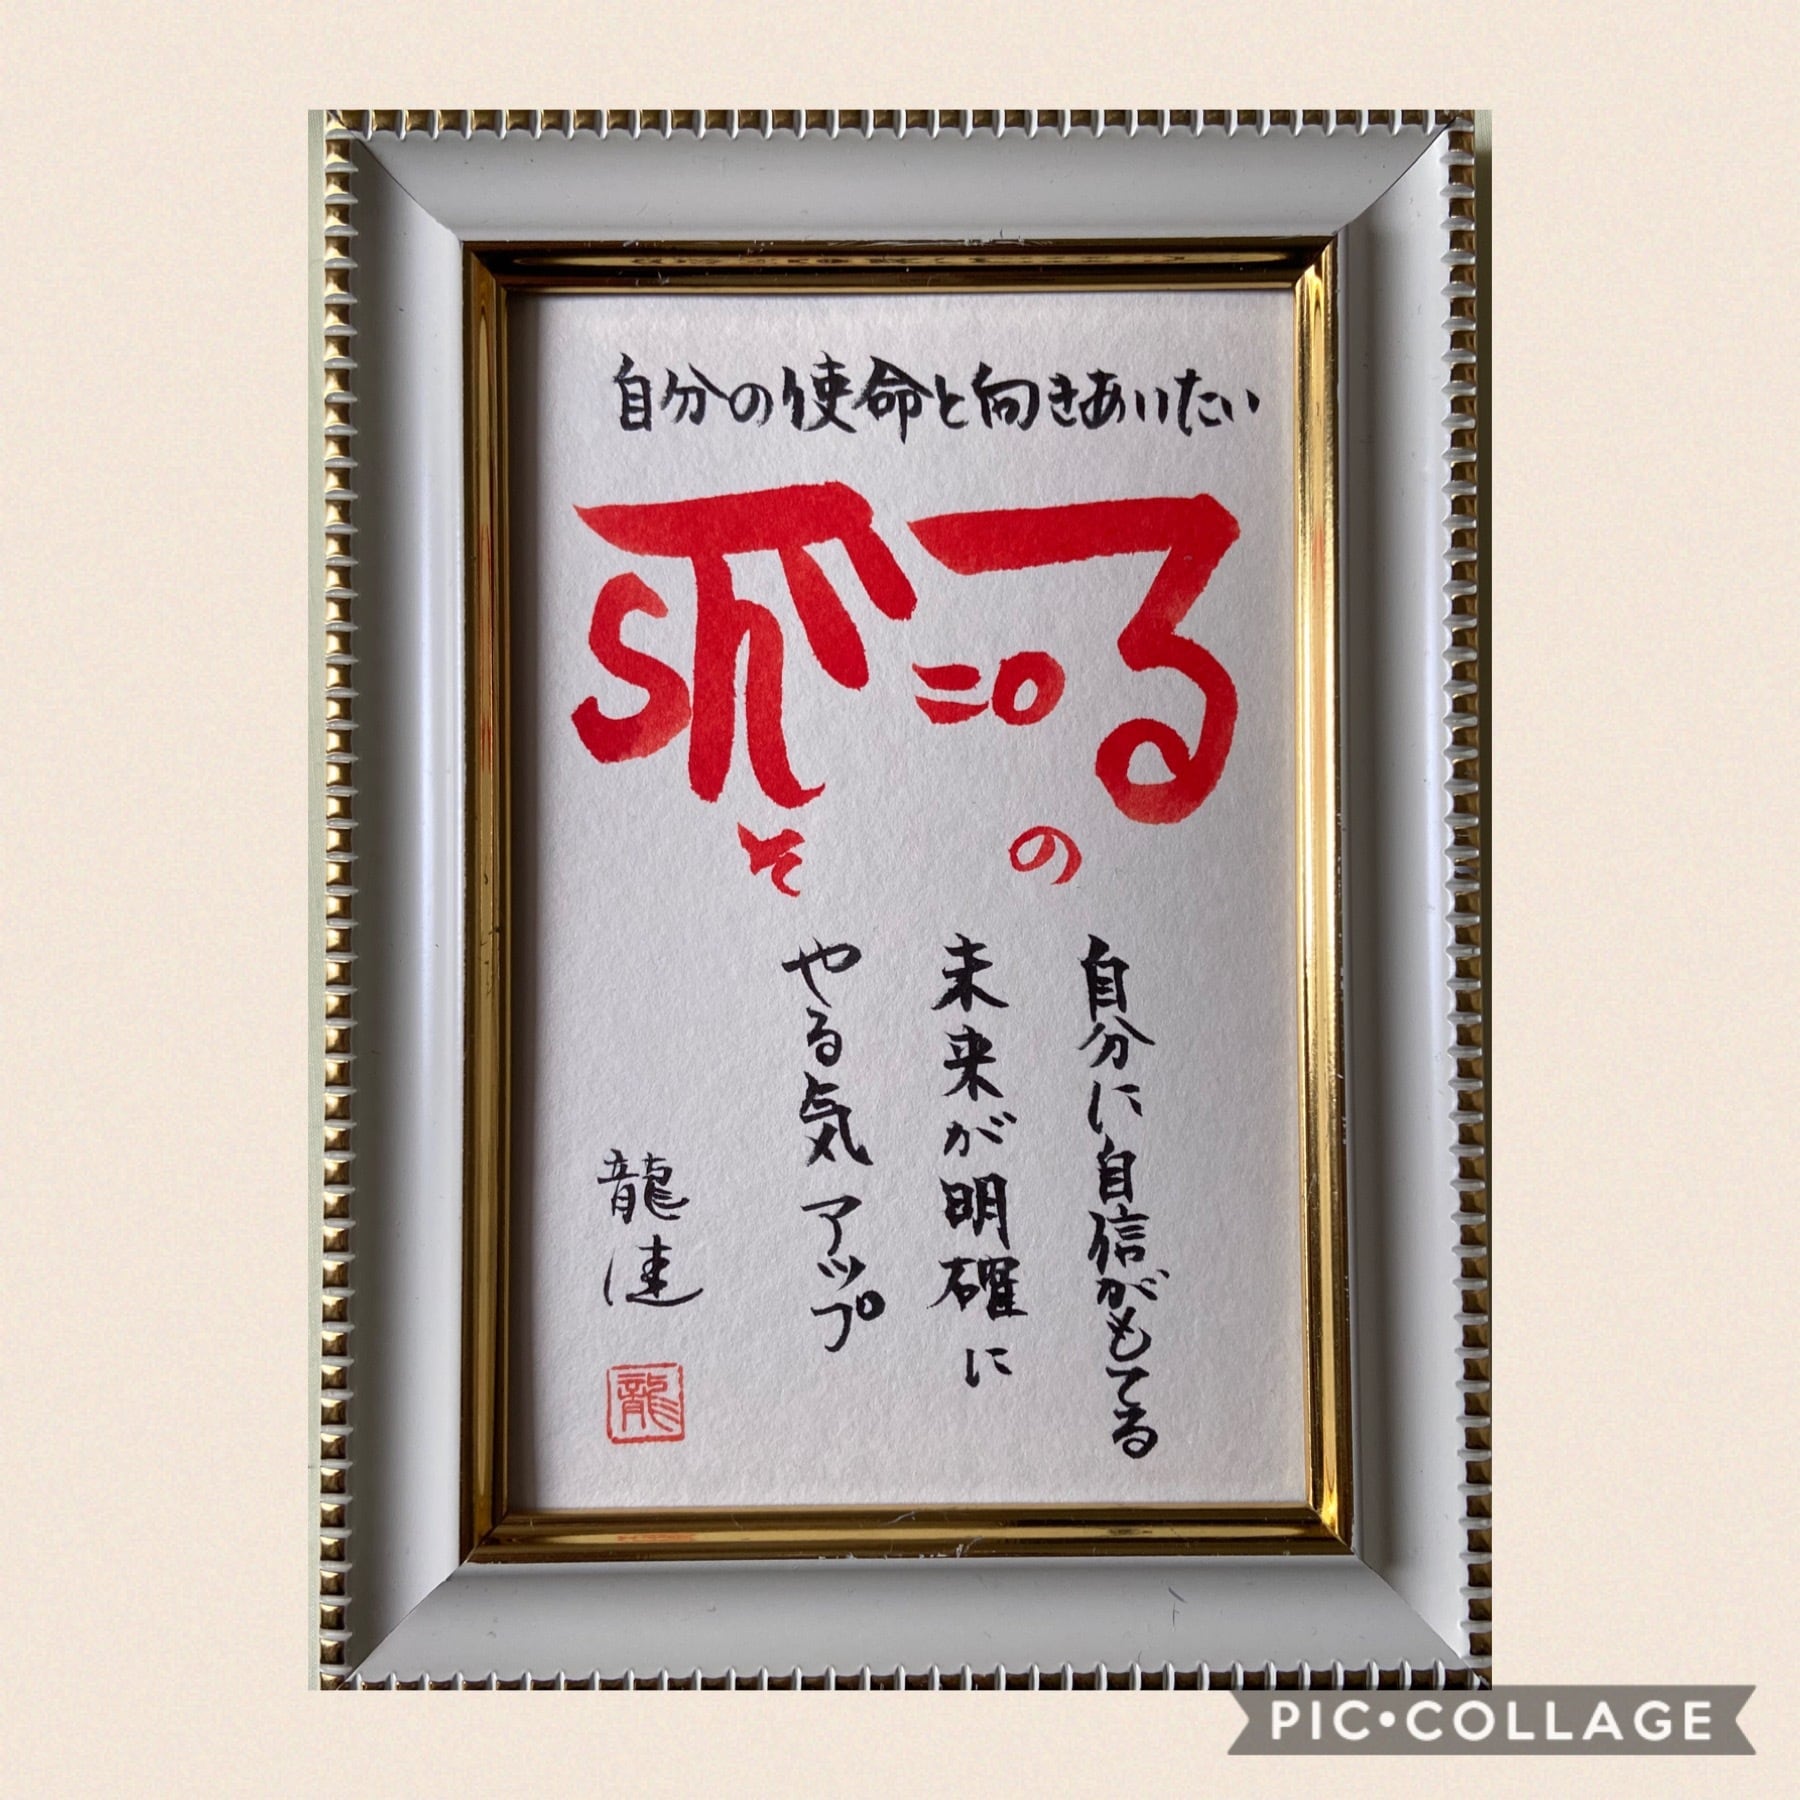 自分の使命と向きあいたい
そ
の
自分に自信がもてる
未来が明確に
やる気アップ
龍
龍
PIC•COLLAGE